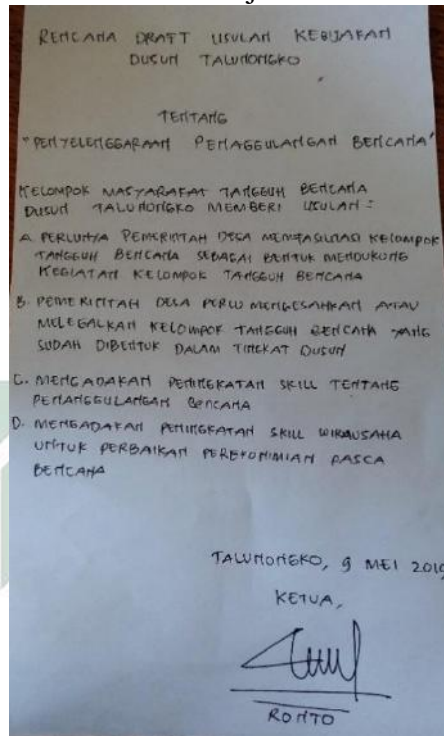 RENCANA DRAFT USULAN KEBIJAKAN
DUSUN TALUNONGKO
TENTANG
"PENYELENGGARAAN PENAGGULANGAN BENCANA"
KELOMPOK MASYARAKAT TANGGUH BENCANA
DUSUN TALUNONGKO MEMBERI USULAN :
A. PERLUNYA PEMERINTAH DESA MEMFASILITASI KELOMPOK
TANGGUH BENCANA SEBAGAI BENTUK MENDUKUNG
KEGIATAN KELOMPOK TANGGUH BENCANA
B. PEMERINTAH DESA PERLU MENGESAHKAN ATAU
MELEGALKAN KELOMPOK TANGGUH BENCANA YANG
SUDAH DIBENTUK DALAM TINGKAT DUSUN
C. MENGADAKAN PENINGKATAN SKILL TENTANG
PENANGGULANGAN BENCANA
D. MENGADAKAN PENINGKATAN SKILL WIRAUSAHA
UNTUK PERBAIKAN PEREKONIMIAN PASCA
BENCANA
TALUNONGKO, 9 MEI 2019
KETUA,
RONTO